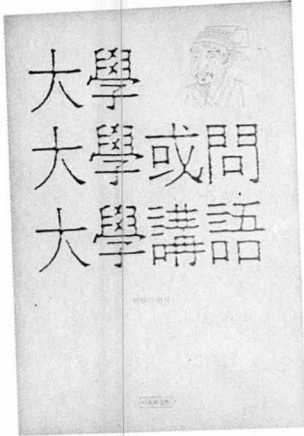 大學
大學或問
大學講語